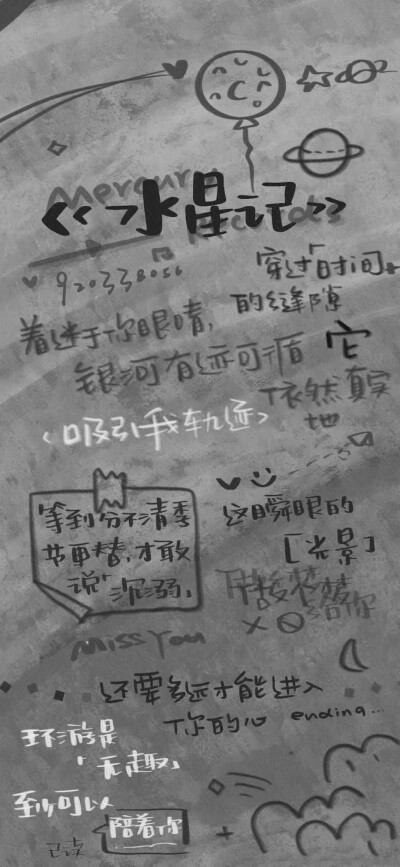 Mercury
《水星记》
Records
920338056
穿过「时间」
的缝隙
着迷于你眼睛,
银河有迹可循
它
依然真实
地
〈吸引我轨迹〉
等到分不清季
节更替,才敢
说「沉溺」
这瞬眼的
[光景]
给你
miss You
还要多远才能进入
「你的心 ending...
环游是
「无趣」
至少可以
陪着你
记录